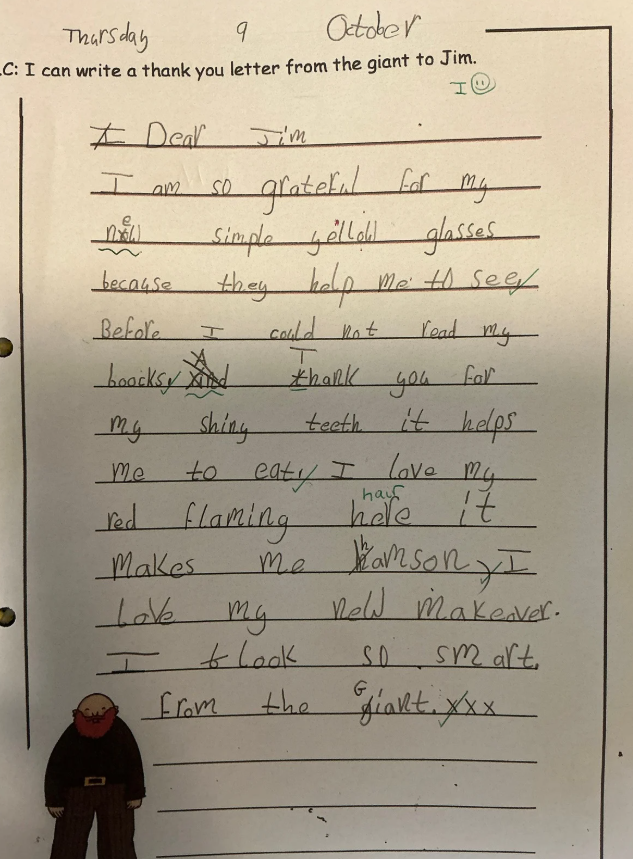 Thursday 9 October
.C: I can write a thank you letter from the giant to Jim.
I ☺
I Dear Jim
I am so grateful for my
e
now simple yellow glasses
because they help me to see
Before I could not read my
A T
boocks And thank you for
my shiny teeth it helps
me to eat, I love my
hair
red flaming here it
makes me hamson, I
Love my new makeover.
I t look so smart.
from the Giant. xxx